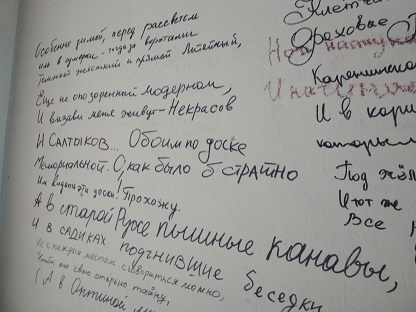 Особенно зимой, перед рассветом
иль в сумерки - тогда за воротами
Темнеет жёсткий и прямой Литейный,
Еще не опозоренный модерном,
И визави меня живут - Некрасов
И Салтыков... Обоим по доске
Мемориальной. О, как было б страшно
Им видеть эти доски! Прохожу.
А в старой Руссе пышные канавы,
И в садиках подгнившие беседки
Не с каждым местом сговориться можно,
Чтобы оно свою открыло тайну,
(А в Оптиной
Клетч
Ореховые
Каренинско
И в кори
которым
Под жёл
И тот же
Все